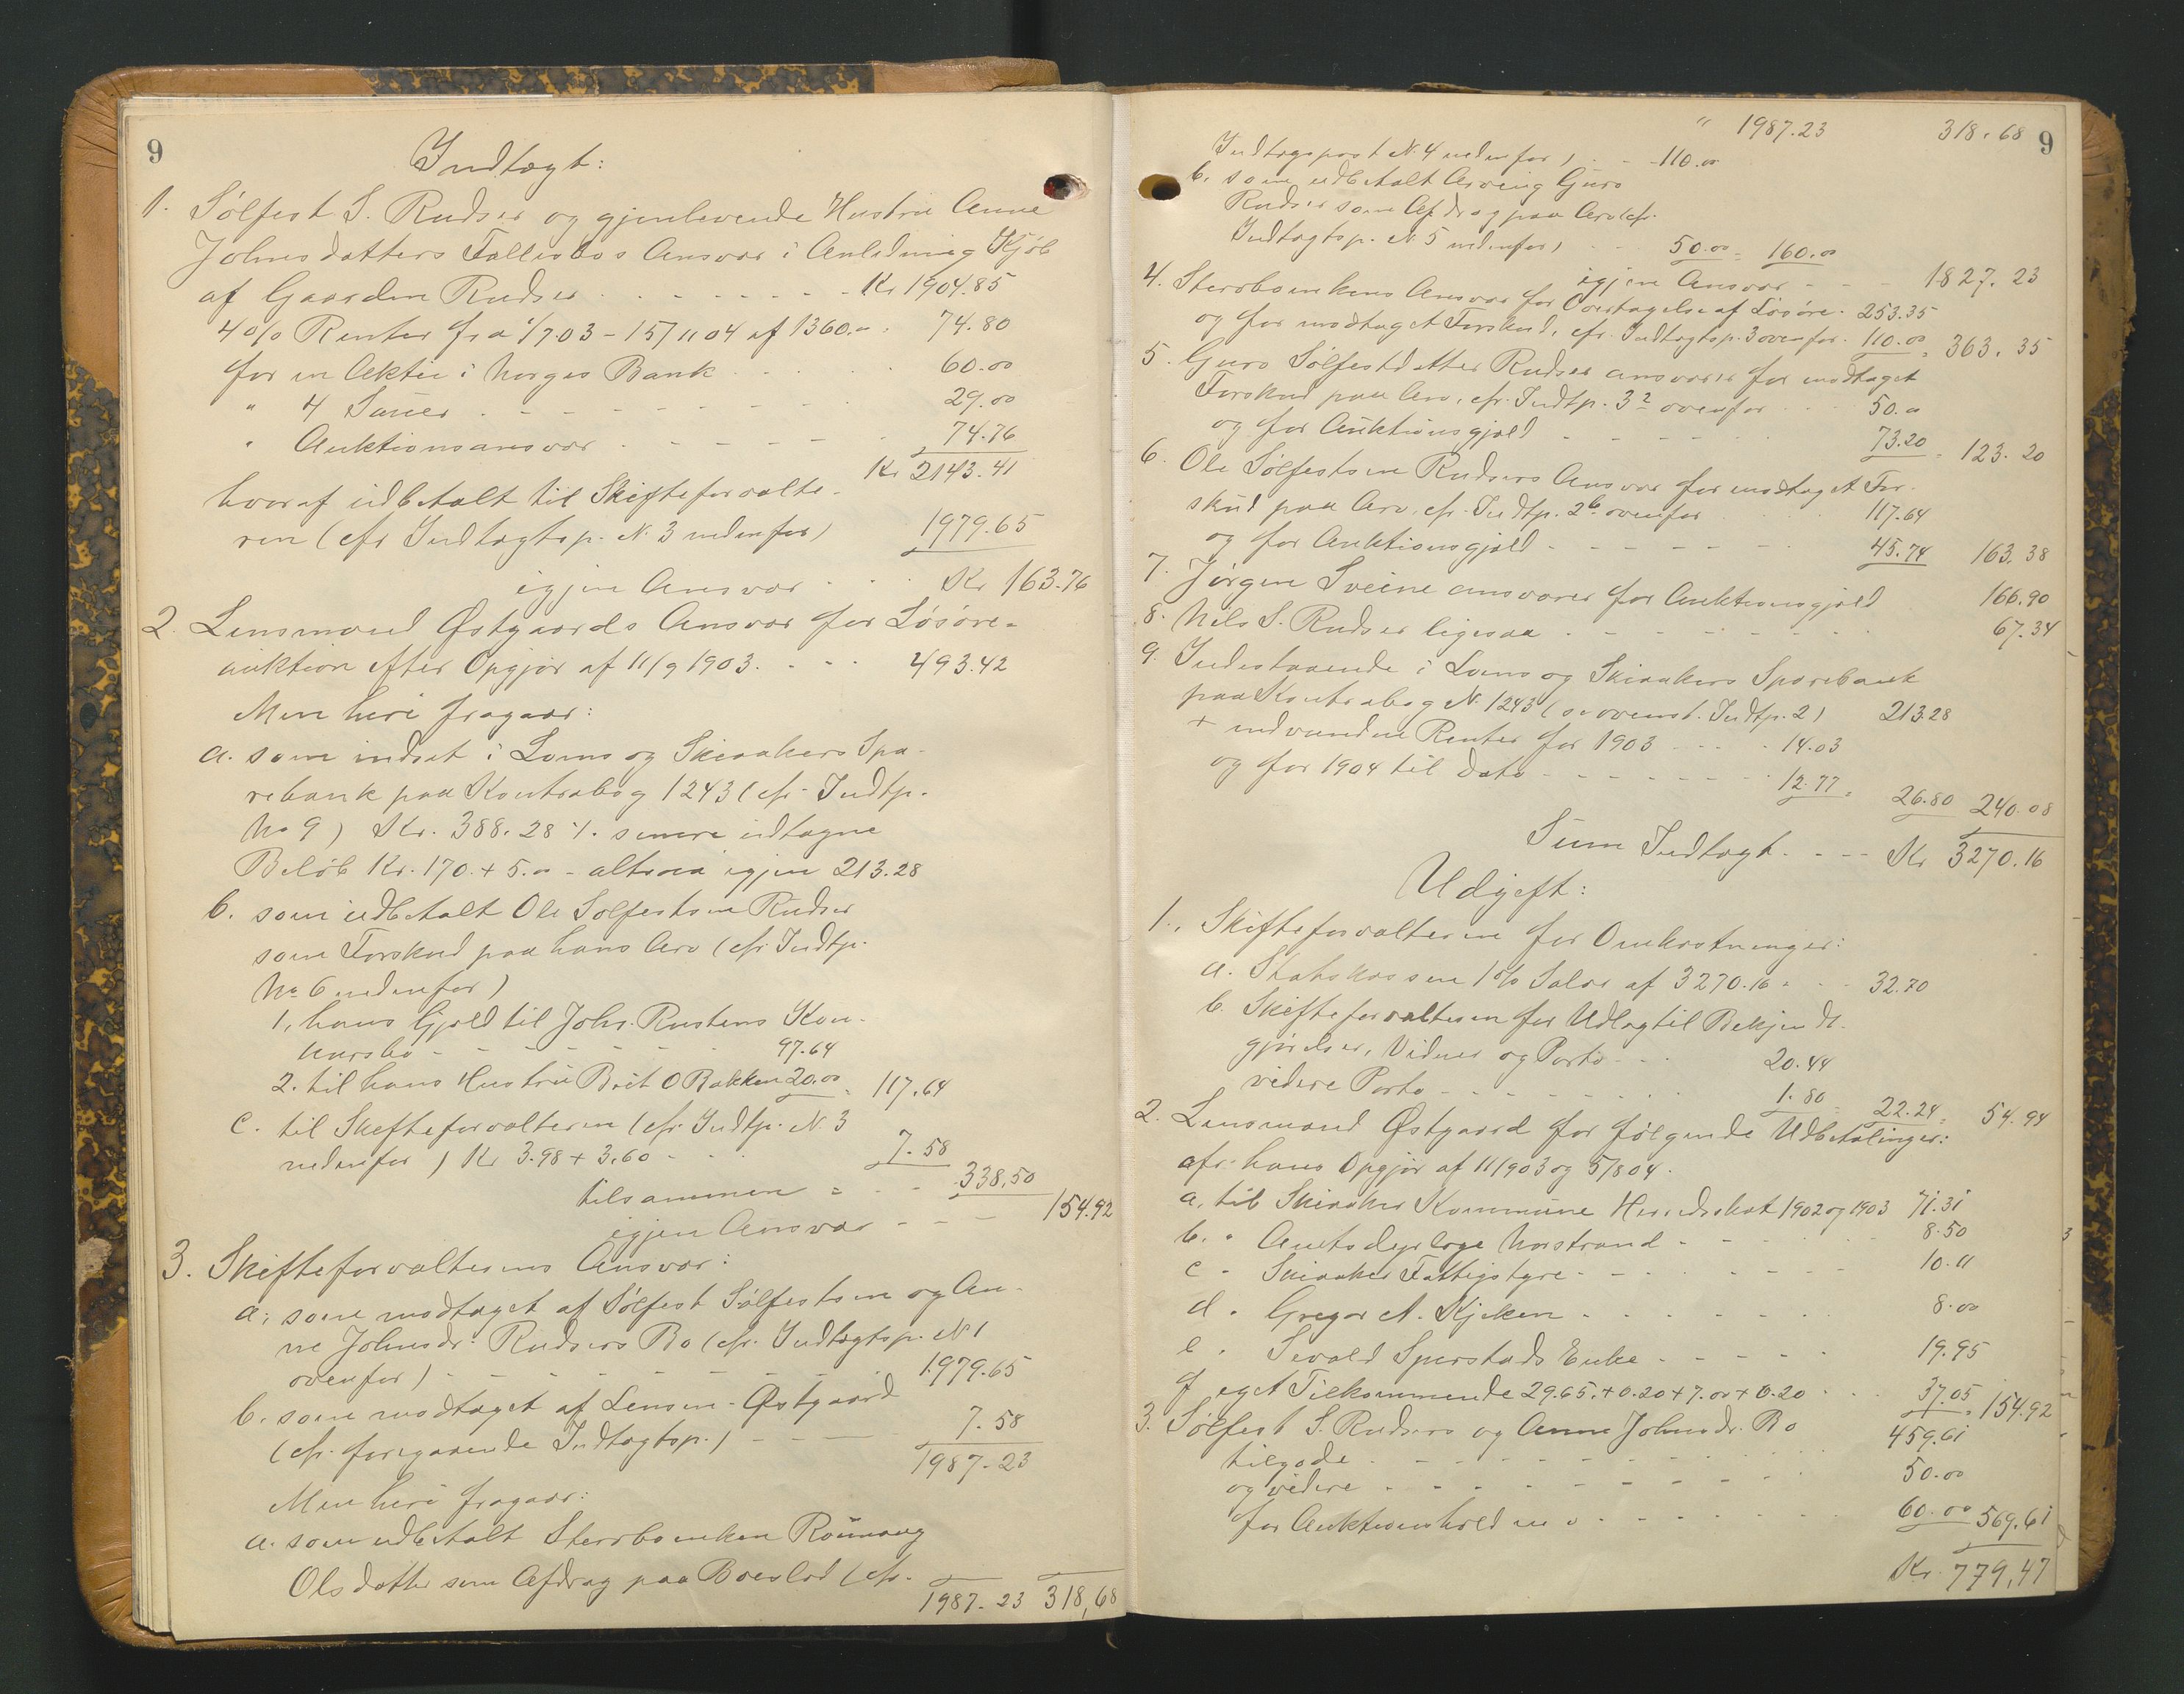 9
Indtægt:
1. Sølfest S. Rudser og gjenlevende Hustru Anne
Johnsdatters Fællesbos Ansvar i Anledning Kjøb
af Gaarden Rudser - - - - Kr 1904.85
4 % Renter fra 1/7.03 - 15/11 04 af 1360.00 . 74.80
for en Aktie i Norges Bank - - - 60.00
" 4 Sauer - - - - 29.00
" Auktionsansvar - - - - 74.76
Kr 2143.41
hvoraf udbetalt til Skifteforvalte-
ren (cfr Indtægtsp. N. 3 nedenfor) 1979.65
igjen Ansvar - - - Kr 163.76
2. Lensmand Østgaards Ansvar for Løsøre-
auktion efter Opgjør af 11/9 1903. - - - 493.42
Men heri fragaar:
a. som indsat i Loms og Skiaakers Spa-
rebank paa Kontrabog 1243 (cfr. Indtp.
No 9) Kr. 388.28 ./. senere udtagne
Beløb Kr. 170. + 5.00 - altsaa igjen 213.28
b. som udbetalt Ole Sølfestsen Rudser
som Forskud paa hans Arv (cfr. Indtp.
No 6 nedenfor)
1, hans Gjæld til Johs. Rustens Kon-
kursbo - - - - 97.64
2. til hans Hustru Brit O Bakken 20.00 = 117.64
c. til Skifteforvalteren (cfr. Indtp. N 3
nedenfor) Kr 3.98 + 3.60 - - 7.58
tilsammen = - - 338.50
igjen Ansvar - - - 154.92
3. Skifteforvalterens Ansvar:
a; som modtaget af Sølfest Sølfestsen og An-
ne Johnsdr. Rudsers Bo (cfr. Indtægtsp. N 1
ovenfor) - - - - 1979.65
b. som modtaget af Lensm. Østgaard
(cfr. foregaaende Indtægtsp.) - - - 7.58
1987.23
Men heri fragaar:
a. som udbetalt Stervboenken Rønnaug
Olsdatter som Afdrag paa Boeslod (cfr.
1987.23 318,68
" 1987.23 318.68 9
Indtægspost N. 4 nedenfor) - - - 110.00
b. som udbetalt Arving Guro
Rudser som Afdrag paa Arv (cfr.
Indtægtsp. N. 5 nedenfor) - - 50.00 = 160.00
igjen Ansvar - - - 1827.23
4. Stervboenkens Ansvar for Overtagelse af Løsøre. 253.35
og for modtaget Forskud, cfr. Indtægtsp. 3 ovenfor. 110.00 = 363.35
5. Guro Sølfestdatter Rudser ansvarer for modtaget
Forskud paa Arv, cfr. Indtp. 3² ovenfor - - 50.00
og for Auktionsgjæld - - - - 73.20 = 123.20
6. Ole Sølfestsen Rudsers Ansvar for modtaget For-
skud paa Arv, cfr. Indtp. 2b ovenfor 117.64
og for Auktionsgjæld - - - - 45.74 163.38
7. Jørgen Sveine ansvarer for Auktionsgjæld 166.90
8. Nils S. Rudser ligesaa - - - - 67.34
9. Indestaaende i Loms og Skiaakers Sparebank
paa Kontrabog N. 1243 (se ovenst. Indtp. 2) 213.28
+ indvundne Renter for 1903 - - - 14.03
og for 1904 til dato - - - - 12.77 = 26.80 240.08
Sum Indtægt. - - - Kr 3270.16
Udgift:
1., Skifteforvalteren for Omkostninger:
a. Statskassen 1 % Salær af 3270.16 - - - 32.70
b. Skifteforvalteren for Udlæg til Bekjendt-
gjørelser, Vidner og Porto - - 20.44
videre Porto - - - - 1.80 = 22.24 = 54.94
2. Lensmand Østgaard for følgende Udbetalinger:
cfr. hans Opgjør af 11/9 03 og 5/8 04.
a, til Skiaaker Kommune Herredsskat 1902 og 1903 71.31
b. " Amtsdyrlæge Norstrand - - - 8.50
c " Skiaaker Fattigstyre - - - - 10.11
d " Gregor A. Kjeken - - - - 8.00
e " Sevald Sperstads Enke - - - - 19.95
f eget Tilkommende 29.65. + 0.20 + 7.00 + 0.20 - - 37.05 = 154.92
3. Sølfest S. Rudsers og Anne Johnsdr. Bo
tilgode - - - - 459.61
og videre - - - - 50.00
for Auktionshold m v - - - - 60.00 569.61
Kr. 779,47